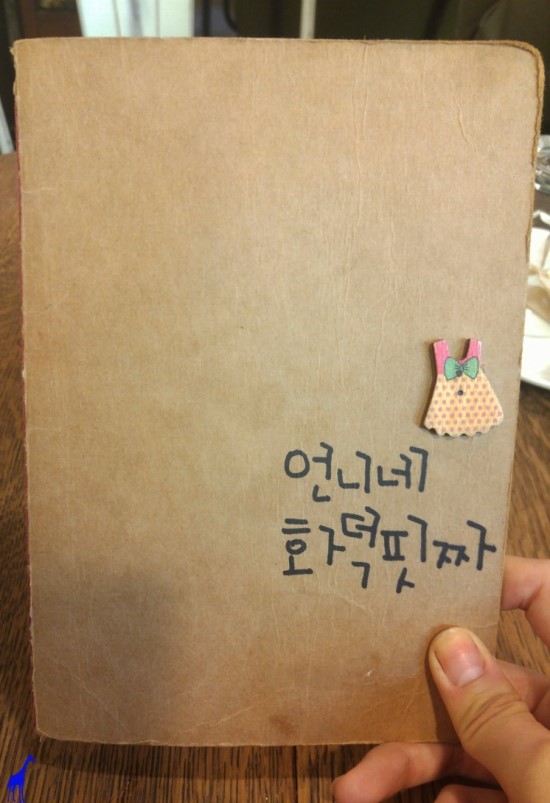 언니네
화덕핏짜